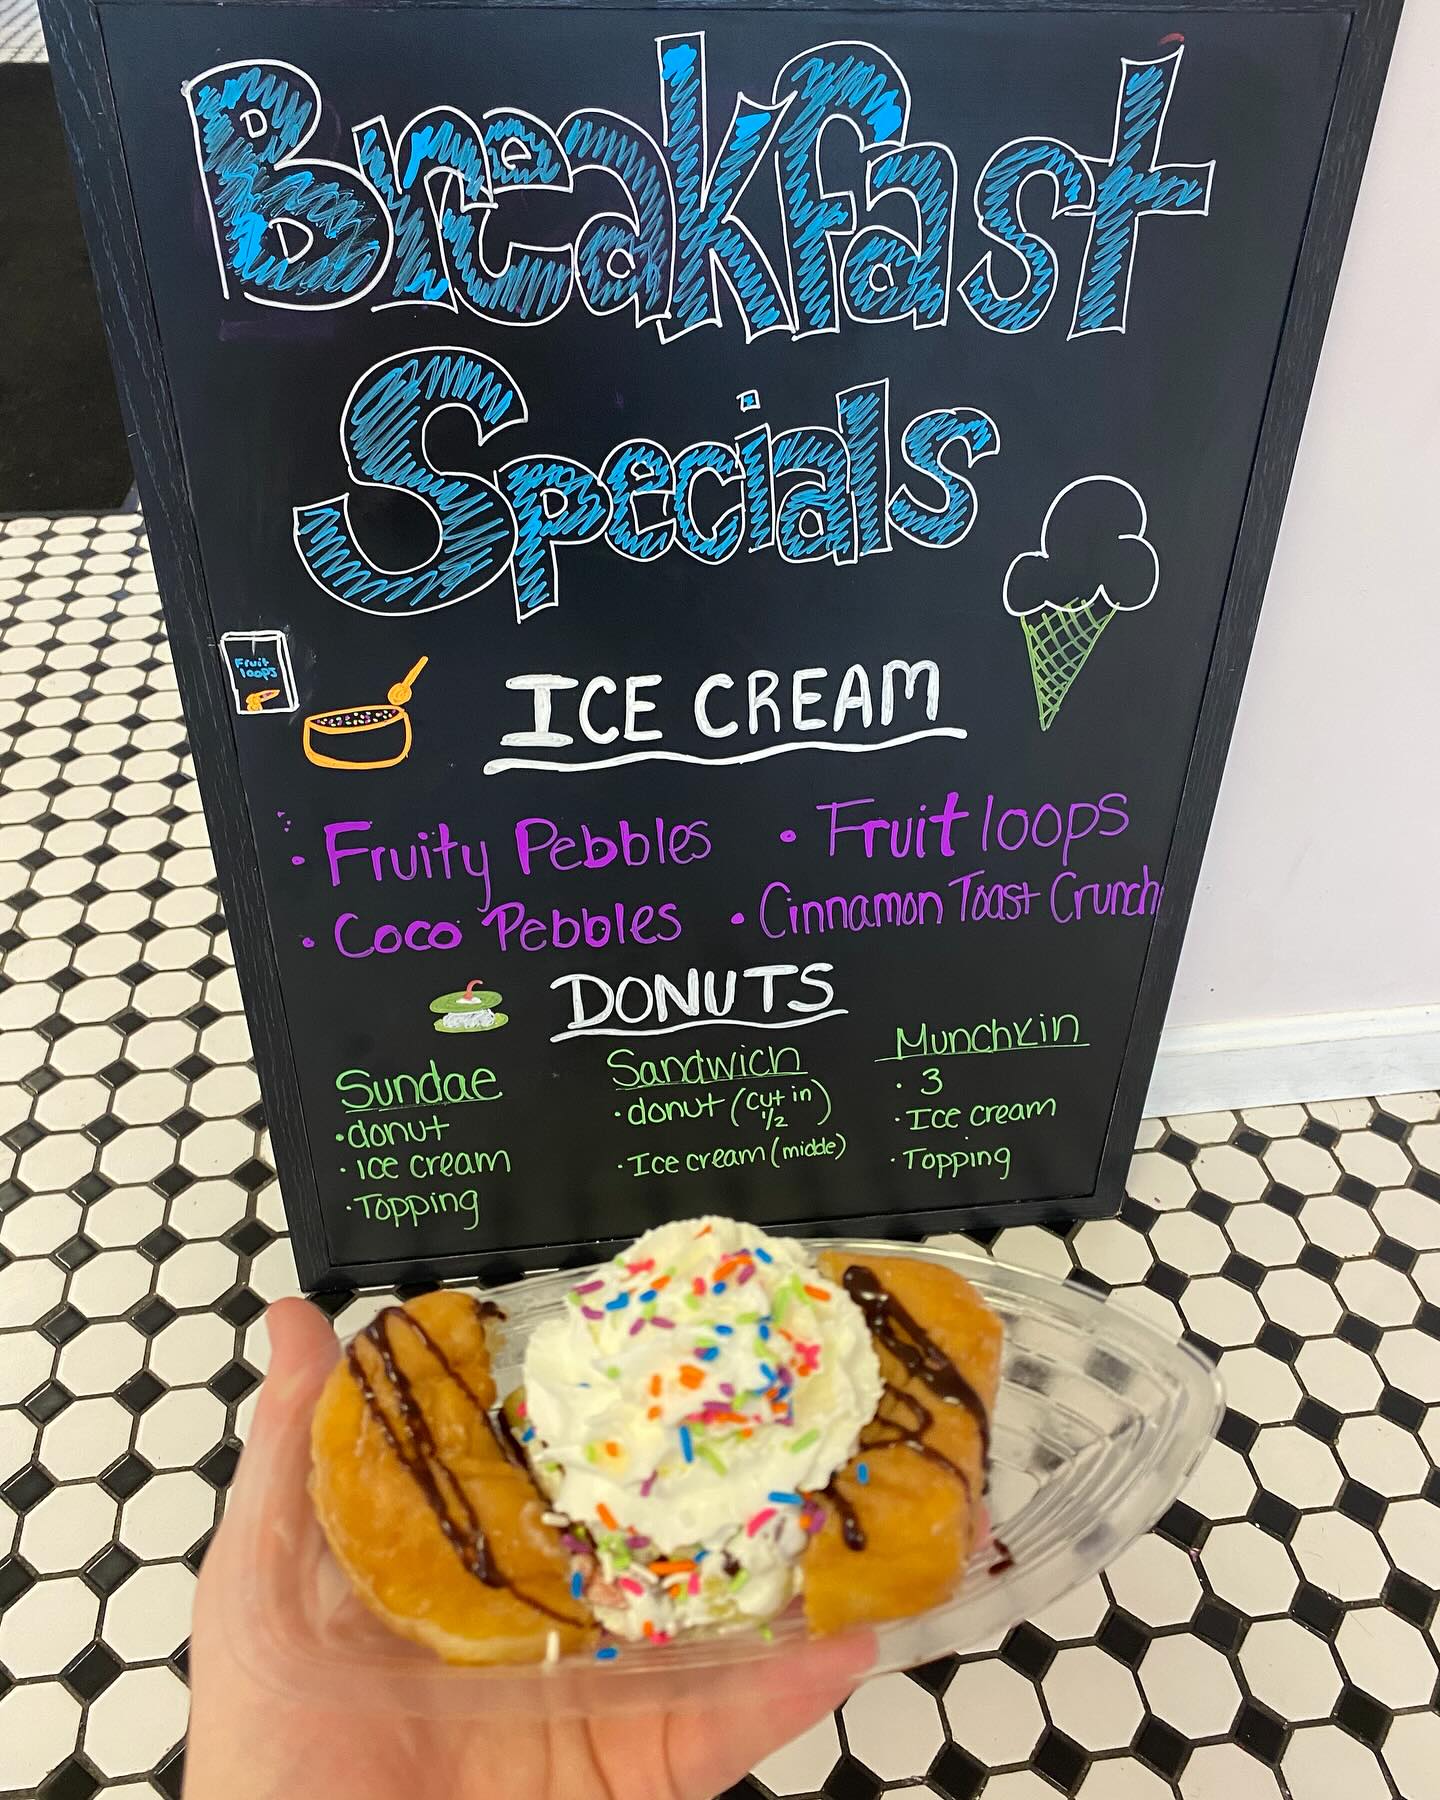 Breakfast
Specials
Fruit
loops
ICE CREAM
• Fruity Pebbles • Fruit loops
• Coco Pebbles • Cinnamon Toast Crunch
DONUTS
Sundae
• donut
• ice cream
• Topping
Sandwich
• donut (cut in 1/2)
• Ice cream (middle)
Munchkin
• 3
• Ice cream
• Topping